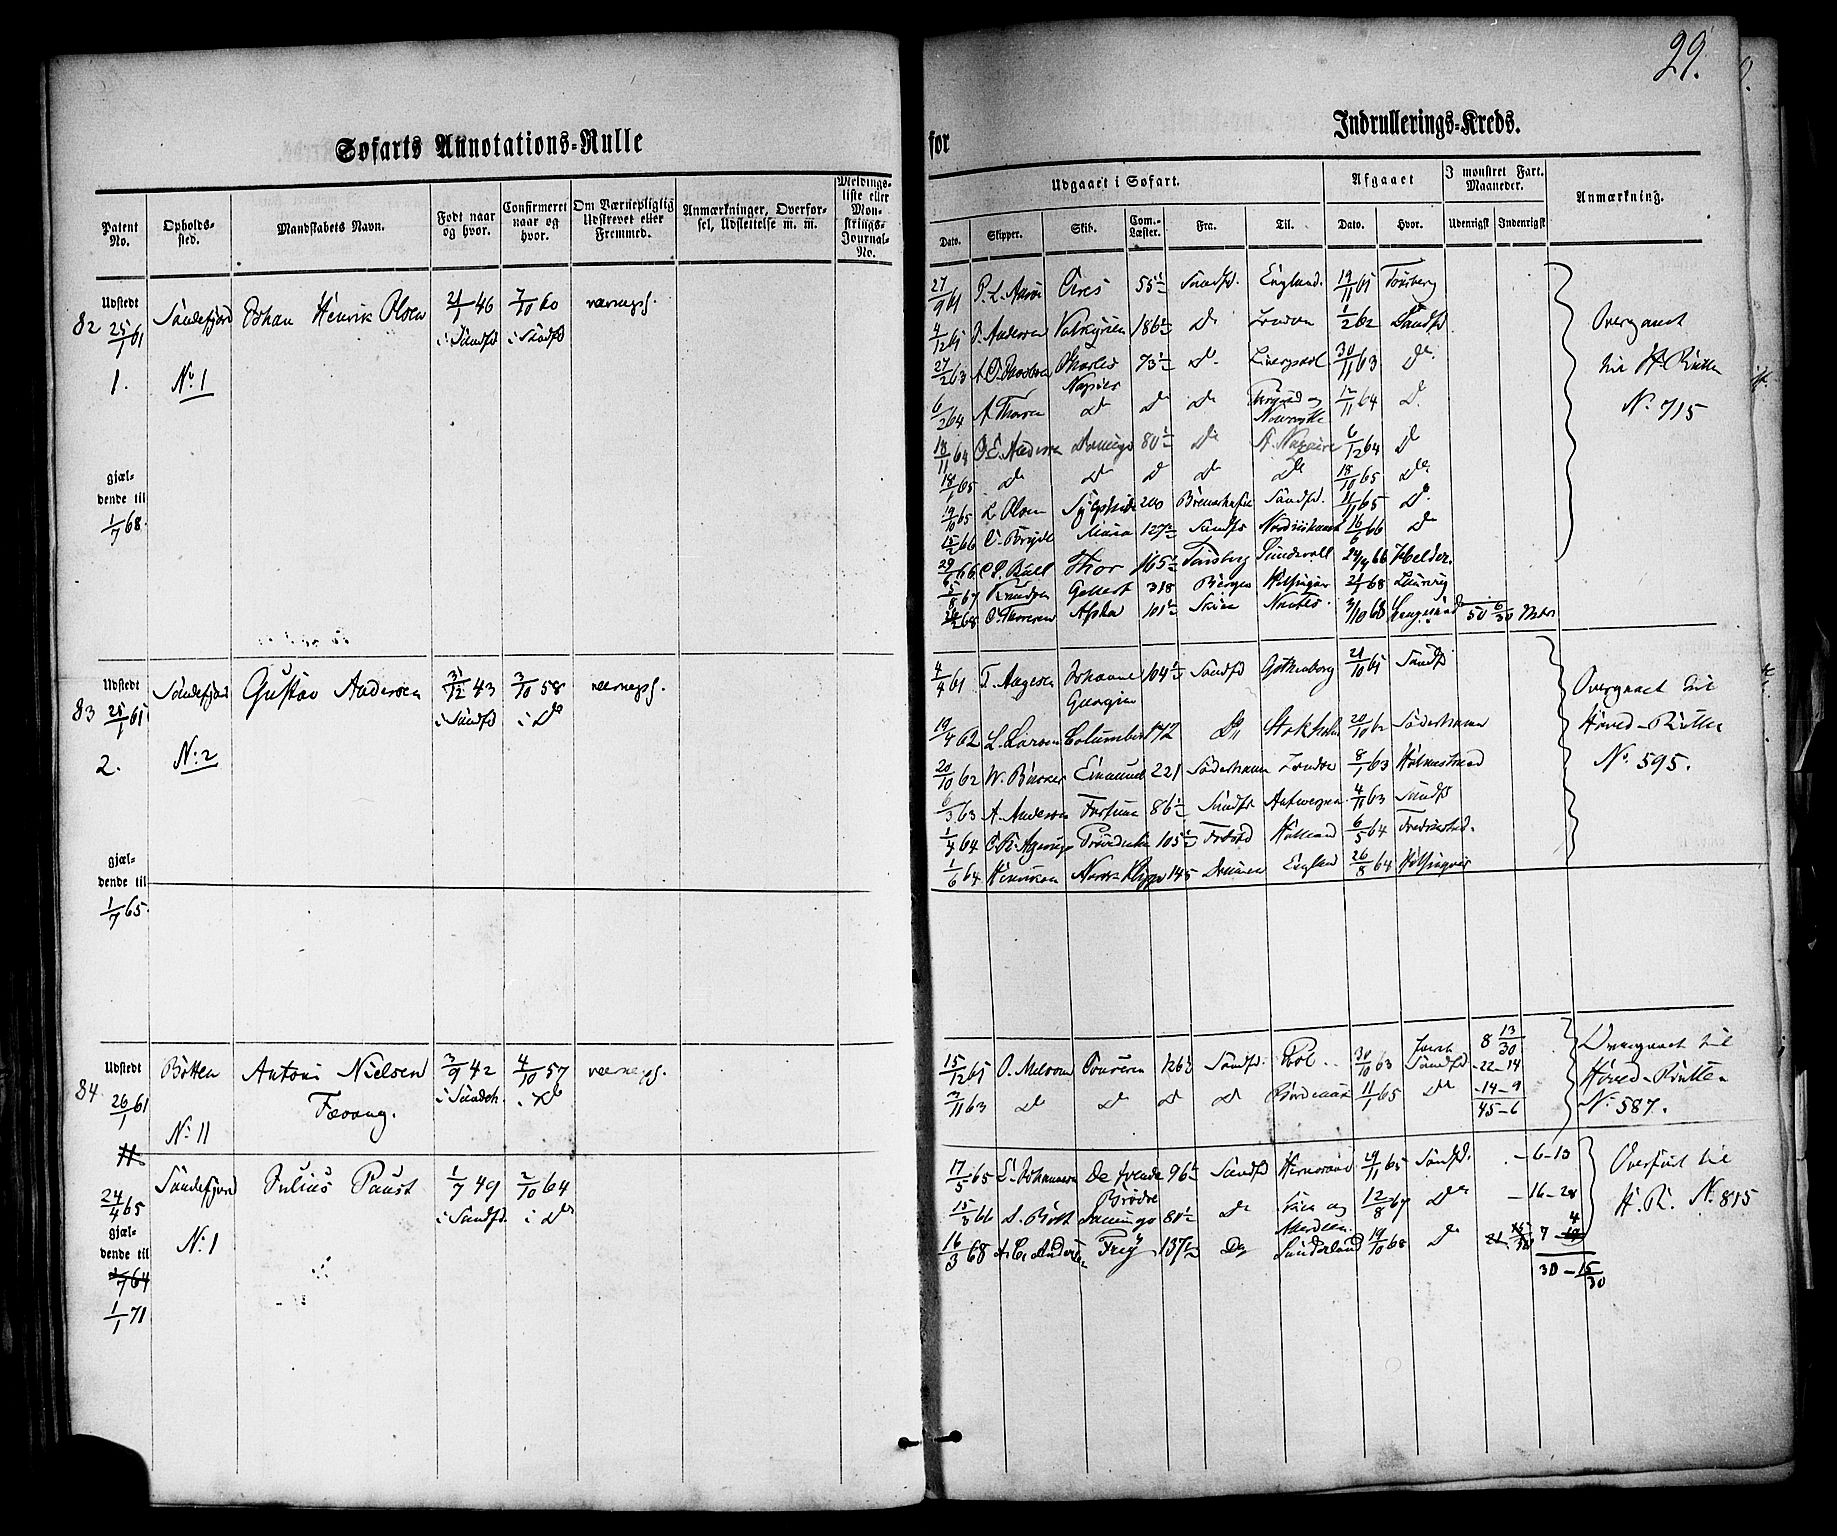 29.
Søfarts Annotations-Rulle
for
Indrullerings-Kreds.
Patent No.
Opholds-sted.
Mandskabets Navn.
Født naar og hvor.
Confirmeret naar og hvor.
Om Værnepligtig Udskrevet eller Fremmed.
Anmærkninger, Overførsel, Udslettelse m. m.
Meldings-liste eller Mon-strings-Journal-No.
Udgaaet i Søfart.
Afgaaet
I mønstret Fart. Maaneder.
Anmærkning.
Dato.
Skipper.
Skib.
Com.-Læster.
Fra.
Til.
Dato.
Hvor.
Udenrigst
Indenrigst
82 Udstedt 25/1 61 Sandefjord Johan Henrik Olsen 21/1 46 i Sandfd 7/10 60 i Sandfd værnepl.
1. No 1
gjæl-
dende til
1/7 68.
27/9 61 Ceres 55½ Sandfd. England. 19/11 61 Tønsberg
4/12 61 Andersen Valkyrien 186½ Do London 1/2 62 Sandfd
27/2 63 Charles Napier 73½ Do Liverpool 30/11 63 Do
6/2 64 A. Thoresen Do Do Do 12/11 64 Do
13/11 64 O. E. Andersen 80½ Do 6/12 64 Do
18/1 65 Do Do Do Do Do 18/10 65 Do
19/10 65 L. Olsen 200 Sandfd. 11/11 65 Do
15/2 66 Maria 127½ Sandfd 16/6 66 Do
29/6 66 Bull Thor 165½ Tønsberg Sundsvall 24/9 66 Helder.
5/8 67 Knudsen Gellert 318 Bergen Helsingør 21/1 68 Laurvig
68 O. Thoresen Alpha 101½ Skien Nantes. 3/10 68 Langesund 50 6/30 Mdr
Overgaaet
til H. Rullen
No. 715
83 Udstedt 25/1 61 Sandefjord Gustav Andersen 31/12 43 i Sandfd 3/10 58 i Do værnepl.
2. No. 2
gjæl-
dende til
1/7 65.
4/4 61 T. Aagesen Johanne Georgine 104½ Sandfd Gothenborg 21/10 61 Sandfd
19/4 62 L. Larsen Columbus 142 Do Stokholm 20/10 62 Söderhamn
20/10 62 W. Bücker 221 Söderhamn London 8/1 63 Holmestrand
6/3 63 A. Andersen Fortuna 86½ Sandfd Antwerpen 4/11 63 Sandfd
1/4 64 105½ Holland 6/5 64 Fredrikstad.
1/6 64 Henriksen Norsk Klippe 145 Drammen England 26/8 64 Helsingør
Overgaaet til
Hoved-Rullen
No. 595.
84. Udstedt 26/1 61 Botten Antoni Nielsen Fævang. 3/9 42 i Sandeh. 4/10 57 i Do værnepl.
11. No 11
15/12 61 O. Melsom 126½ Sandfd. 30/10 63 Sandfd 8 13/30
22–14
3/11 63 Do Do Do Do Bordeaux 11/1 65 Do 14–9
45–6
Overgaaet til
Hoved-Rullen
No. 587.
24/4 65 Sandefjord Julius Paust 1/7 49 i Sandfd. 2/10 64 i Do
gjæl-
dende til No. 1
1/7 64
1/1 71
17/5 65 L. Johannesen De tvende Brødre 96½ Sandfd Hernøsand 29/11 65 Sandfd. – 6–13
15/3 66 Domingo 80½ Do 12/8 67 Do – 16–28
16/3 68 A. C. Andersen Frey 137½ Do Sunderland 19/10 68 Do 7–4
30–15/30
Overført til
H. R. No. 815